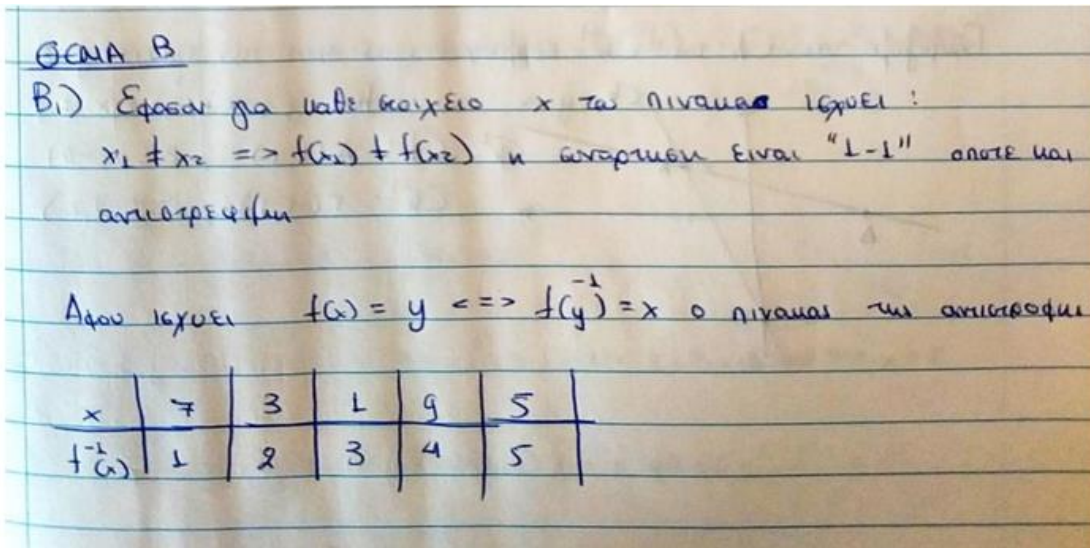 ΘΕΜΑ Β
Β.) Εφοσον για καθε στοιχειο x του πινακα ισχυει :
x₁ ≠ x₂ => f(x₁) ≠ f(x₂) η συναρτηση ειναι "1-1" οποτε και
αντιστρεψιμη
Αφου ισχυει f(x) = y <=> f⁻¹(y) = x ο πινακας της αντιστροφης
x 7 3 1 9 5
f⁻¹(x) 1 2 3 4 5